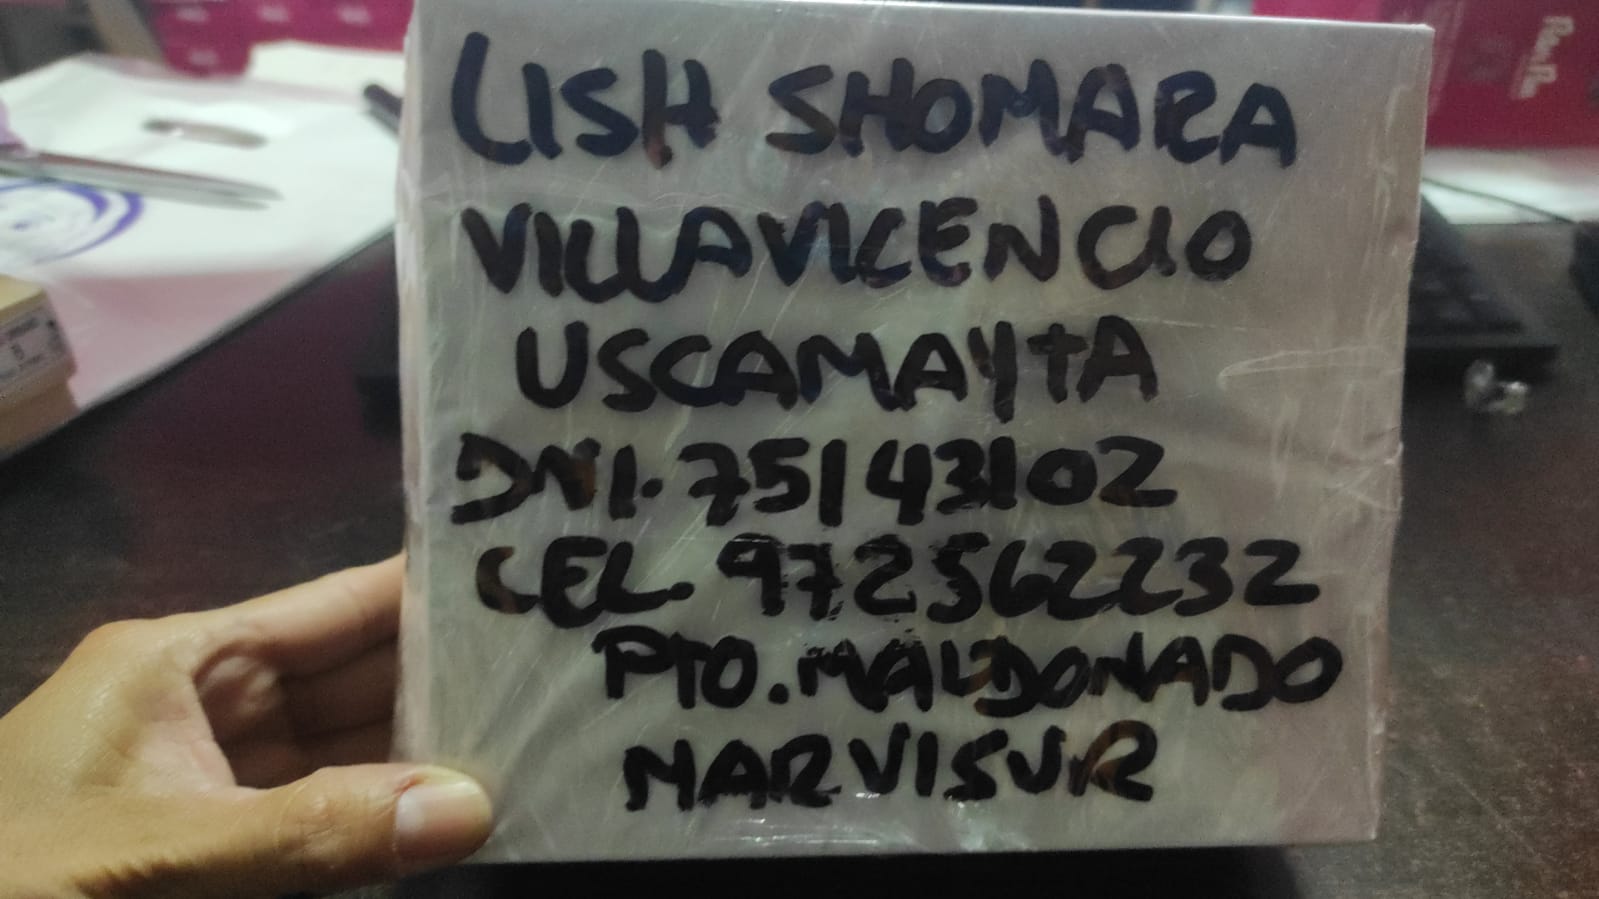 LISH SHOMARA
VILLAVICENCIO
USCAMAYTA
DNI. 75143102
CEL. 972562232
PTO. MALDONADO
MARVISUR